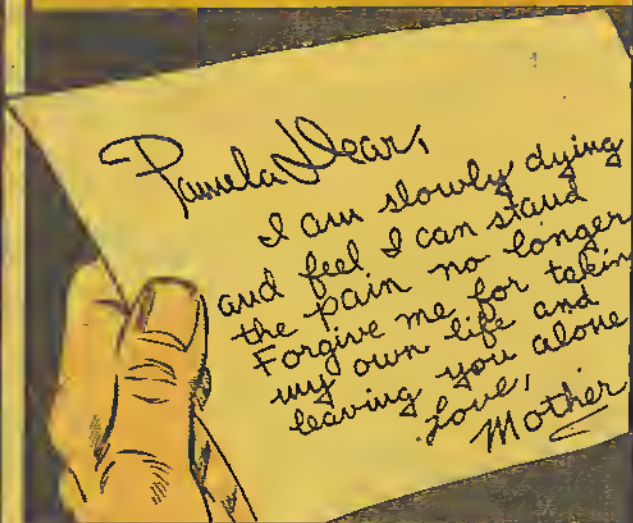 Pamela Dear,
I am slowly dying
and feel I can stand
the pain no longer
Forgive me for takin
my own life and
leaving you alone
Love,
Mother